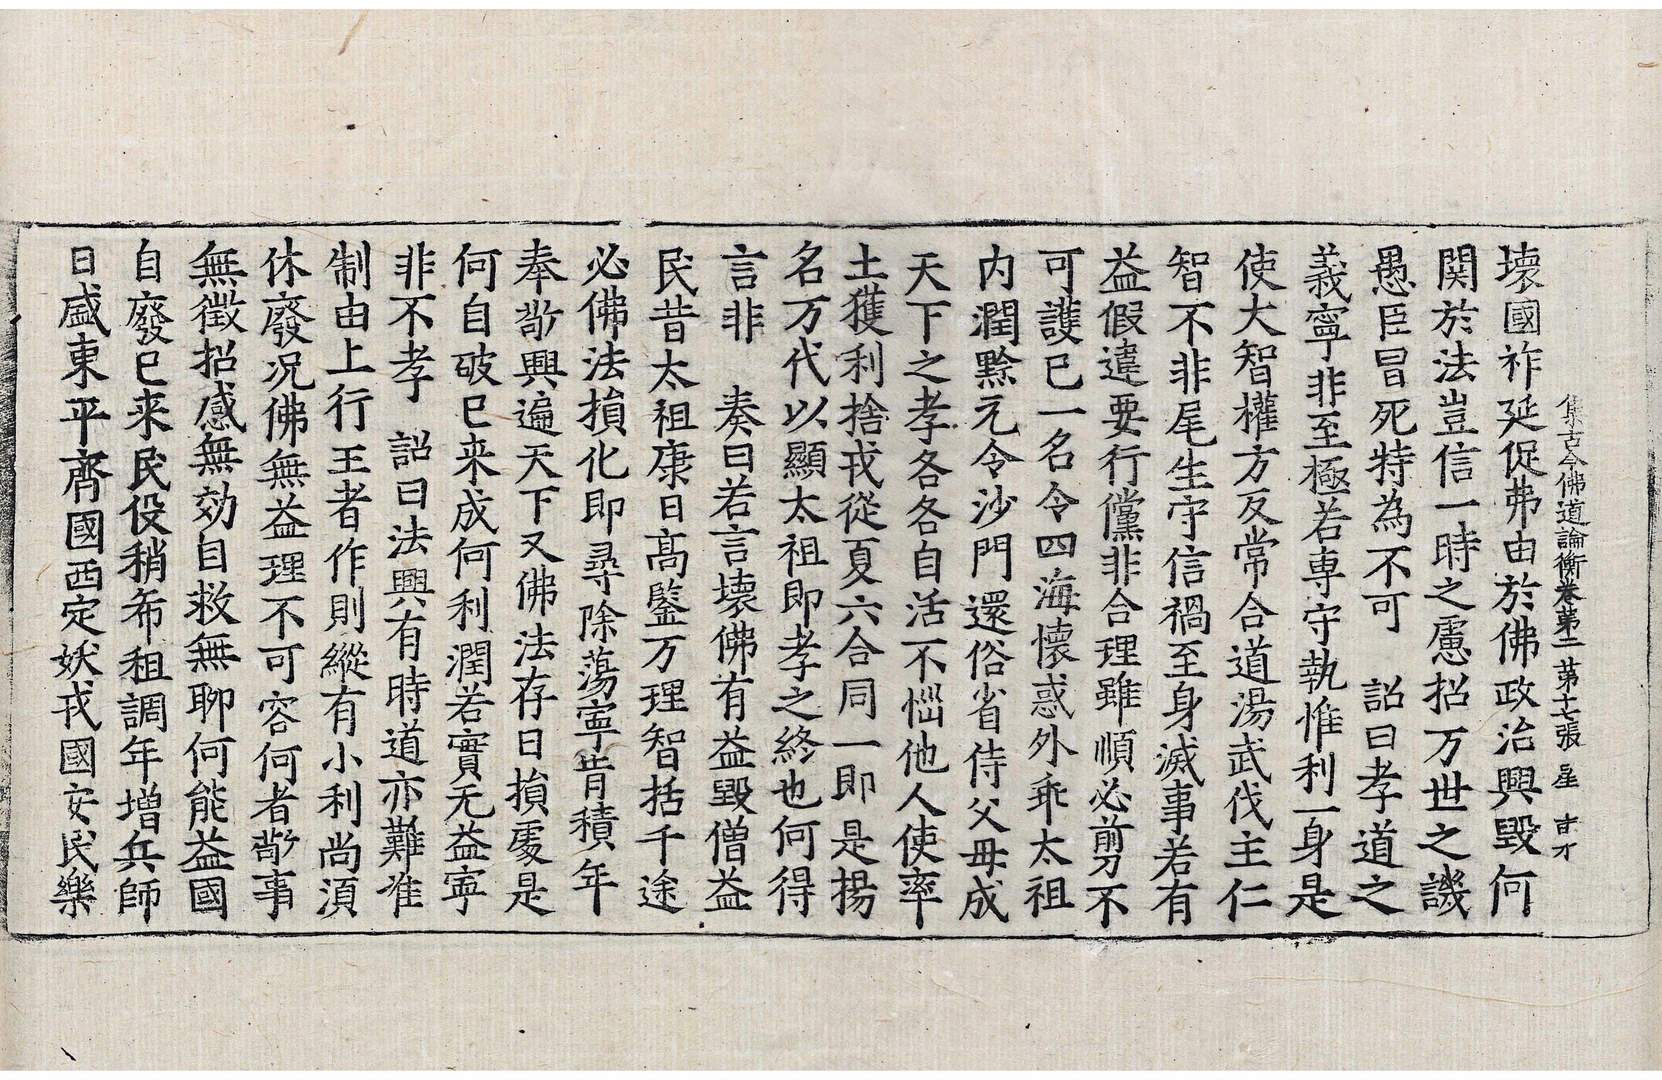 集古今佛道論衡卷第二 第十七張 星 吉才
壞國祚延促弗由於佛政治興毀何
関於法豈信一時之慮招万世之譏
愚臣冒死特為不可 詔曰孝道之
義寧非至極若専守執惟利一身是
使大智權方反常合道湯武伐主仁
智不非尾生守信禍至身滅事若有
益假違要行儻非合理雖順必剪不
可護已一名令四海懷惑外乖太祖
内潤黙元令沙門還俗省侍父母成
天下之孝各各自活不惱他人使率
土獲利捨戎從夏六合同一即是揚
名万代以顯太祖即孝之終也何得
言非 奏曰若言壞佛有益毀僧益
民昔太祖康日髙鑒万理智括千途
必佛法損化即尋除蕩寧肯積年
奉敬興遍天下又佛法存日損處是
何自破已来成何利潤若實无益寧
非不孝 詔曰法興有時道亦難准
制由上行王者作則縱有小利尚湏
休廢况佛無益理不可容何者敬事
無徵招感無効自救無聊何能益國
自廢已来民役稍希租調年増兵師
日盛東平齊國西定妖戎國安民樂